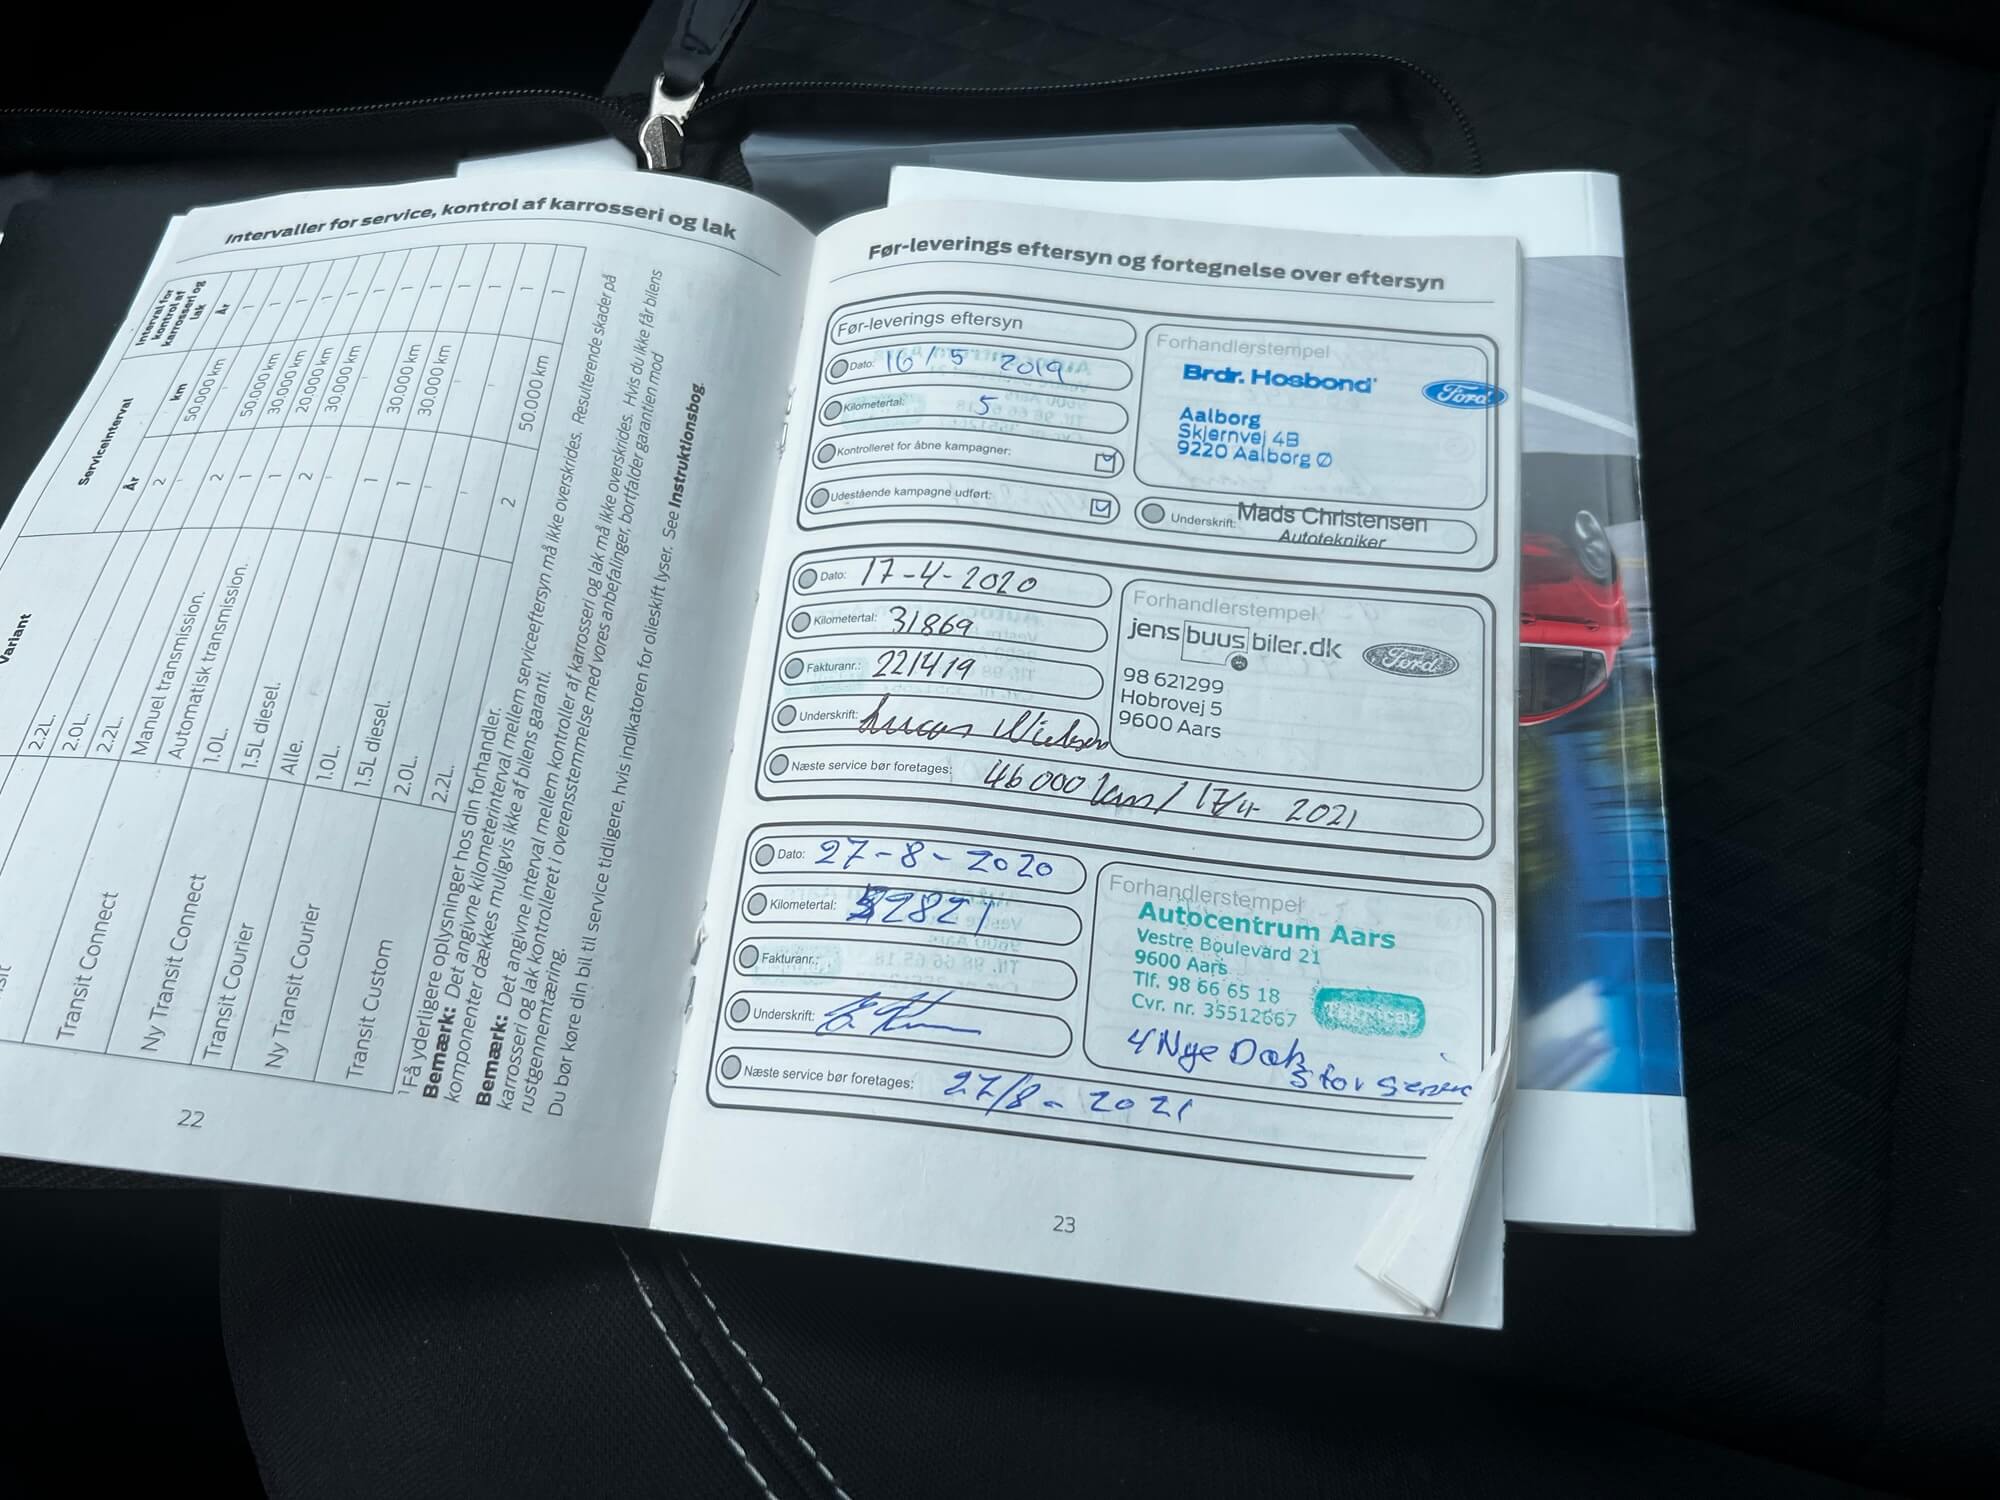 Intervaller for service, kontrol af karrosseri og lak
Variant
Serviceinterval
Interval for kontrol af karrosseri og lak
År
km
År
Transit Connect
2.2L.
2
50.000 km
1
2.0L.
-
-
1
2.2L.
2
50.000 km
1
Ny Transit Connect
Manuel transmission.
1
30.000 km
1
Automatisk transmission.
1
20.000 km
1
Transit Courier
1.0L.
2
30.000 km
1
1.5L diesel.
-
-
1
Ny Transit Courier
Alle.
1
30.000 km
1
1.0L.
1
30.000 km
1
1.5L diesel.
-
-
1
Transit Custom
2.0L.
-
-
1
2.2L.
2
50.000 km
1
¹ Få yderligere oplysninger hos din forhandler.
Bemærk: Det angivne kilometerinterval mellem serviceeftersyn må ikke overskrides. Resulterende skader på
komponenter dækkes muligvis ikke af bilens garanti.
Bemærk: Det angivne interval mellem kontroller af karrosseri og lak må ikke overskrides. Hvis du ikke får bilens
karrosseri og lak kontrolleret i overensstemmelse med vores anbefalinger, bortfalder garantien mod
rustgennemtæring.
Du bør køre din bil til service tidligere, hvis indikatoren for olieskift lyser. See Instruktionsbog.
22
Før-leverings eftersyn og fortegnelse over eftersyn
Før-leverings eftersyn
Dato: 16/5 2019
Kilometertal: 5
Kontrolleret for åbne kampagner:
Udestående kampagne udført:
Forhandlerstempel
Brdr. Hosbond
Ford
Aalborg
Skjernvej 4B
9220 Aalborg Ø
Underskrift: Mads Christensen
Autotekniker
Dato: 17-4-2020
Kilometertal: 31869
Fakturanr.: 221419
Underskrift:
Forhandlerstempel
jensbuusbiler.dk
Ford
98 621299
Hobrovej 5
9600 Aars
Næste service bør foretages: 46000 km / 17/4 2021
Dato: 27-8-2020
Kilometertal:
Fakturanr.:
Underskrift:
Forhandlerstempel
Autocentrum Aars
Vestre Boulevard 21
9600 Aars
Tlf. 98 66 65 18
Cvr. nr. 35512667
Teknicar
4 Nye Dæk
stor service
Næste service bør foretages: 27/8-2021
23